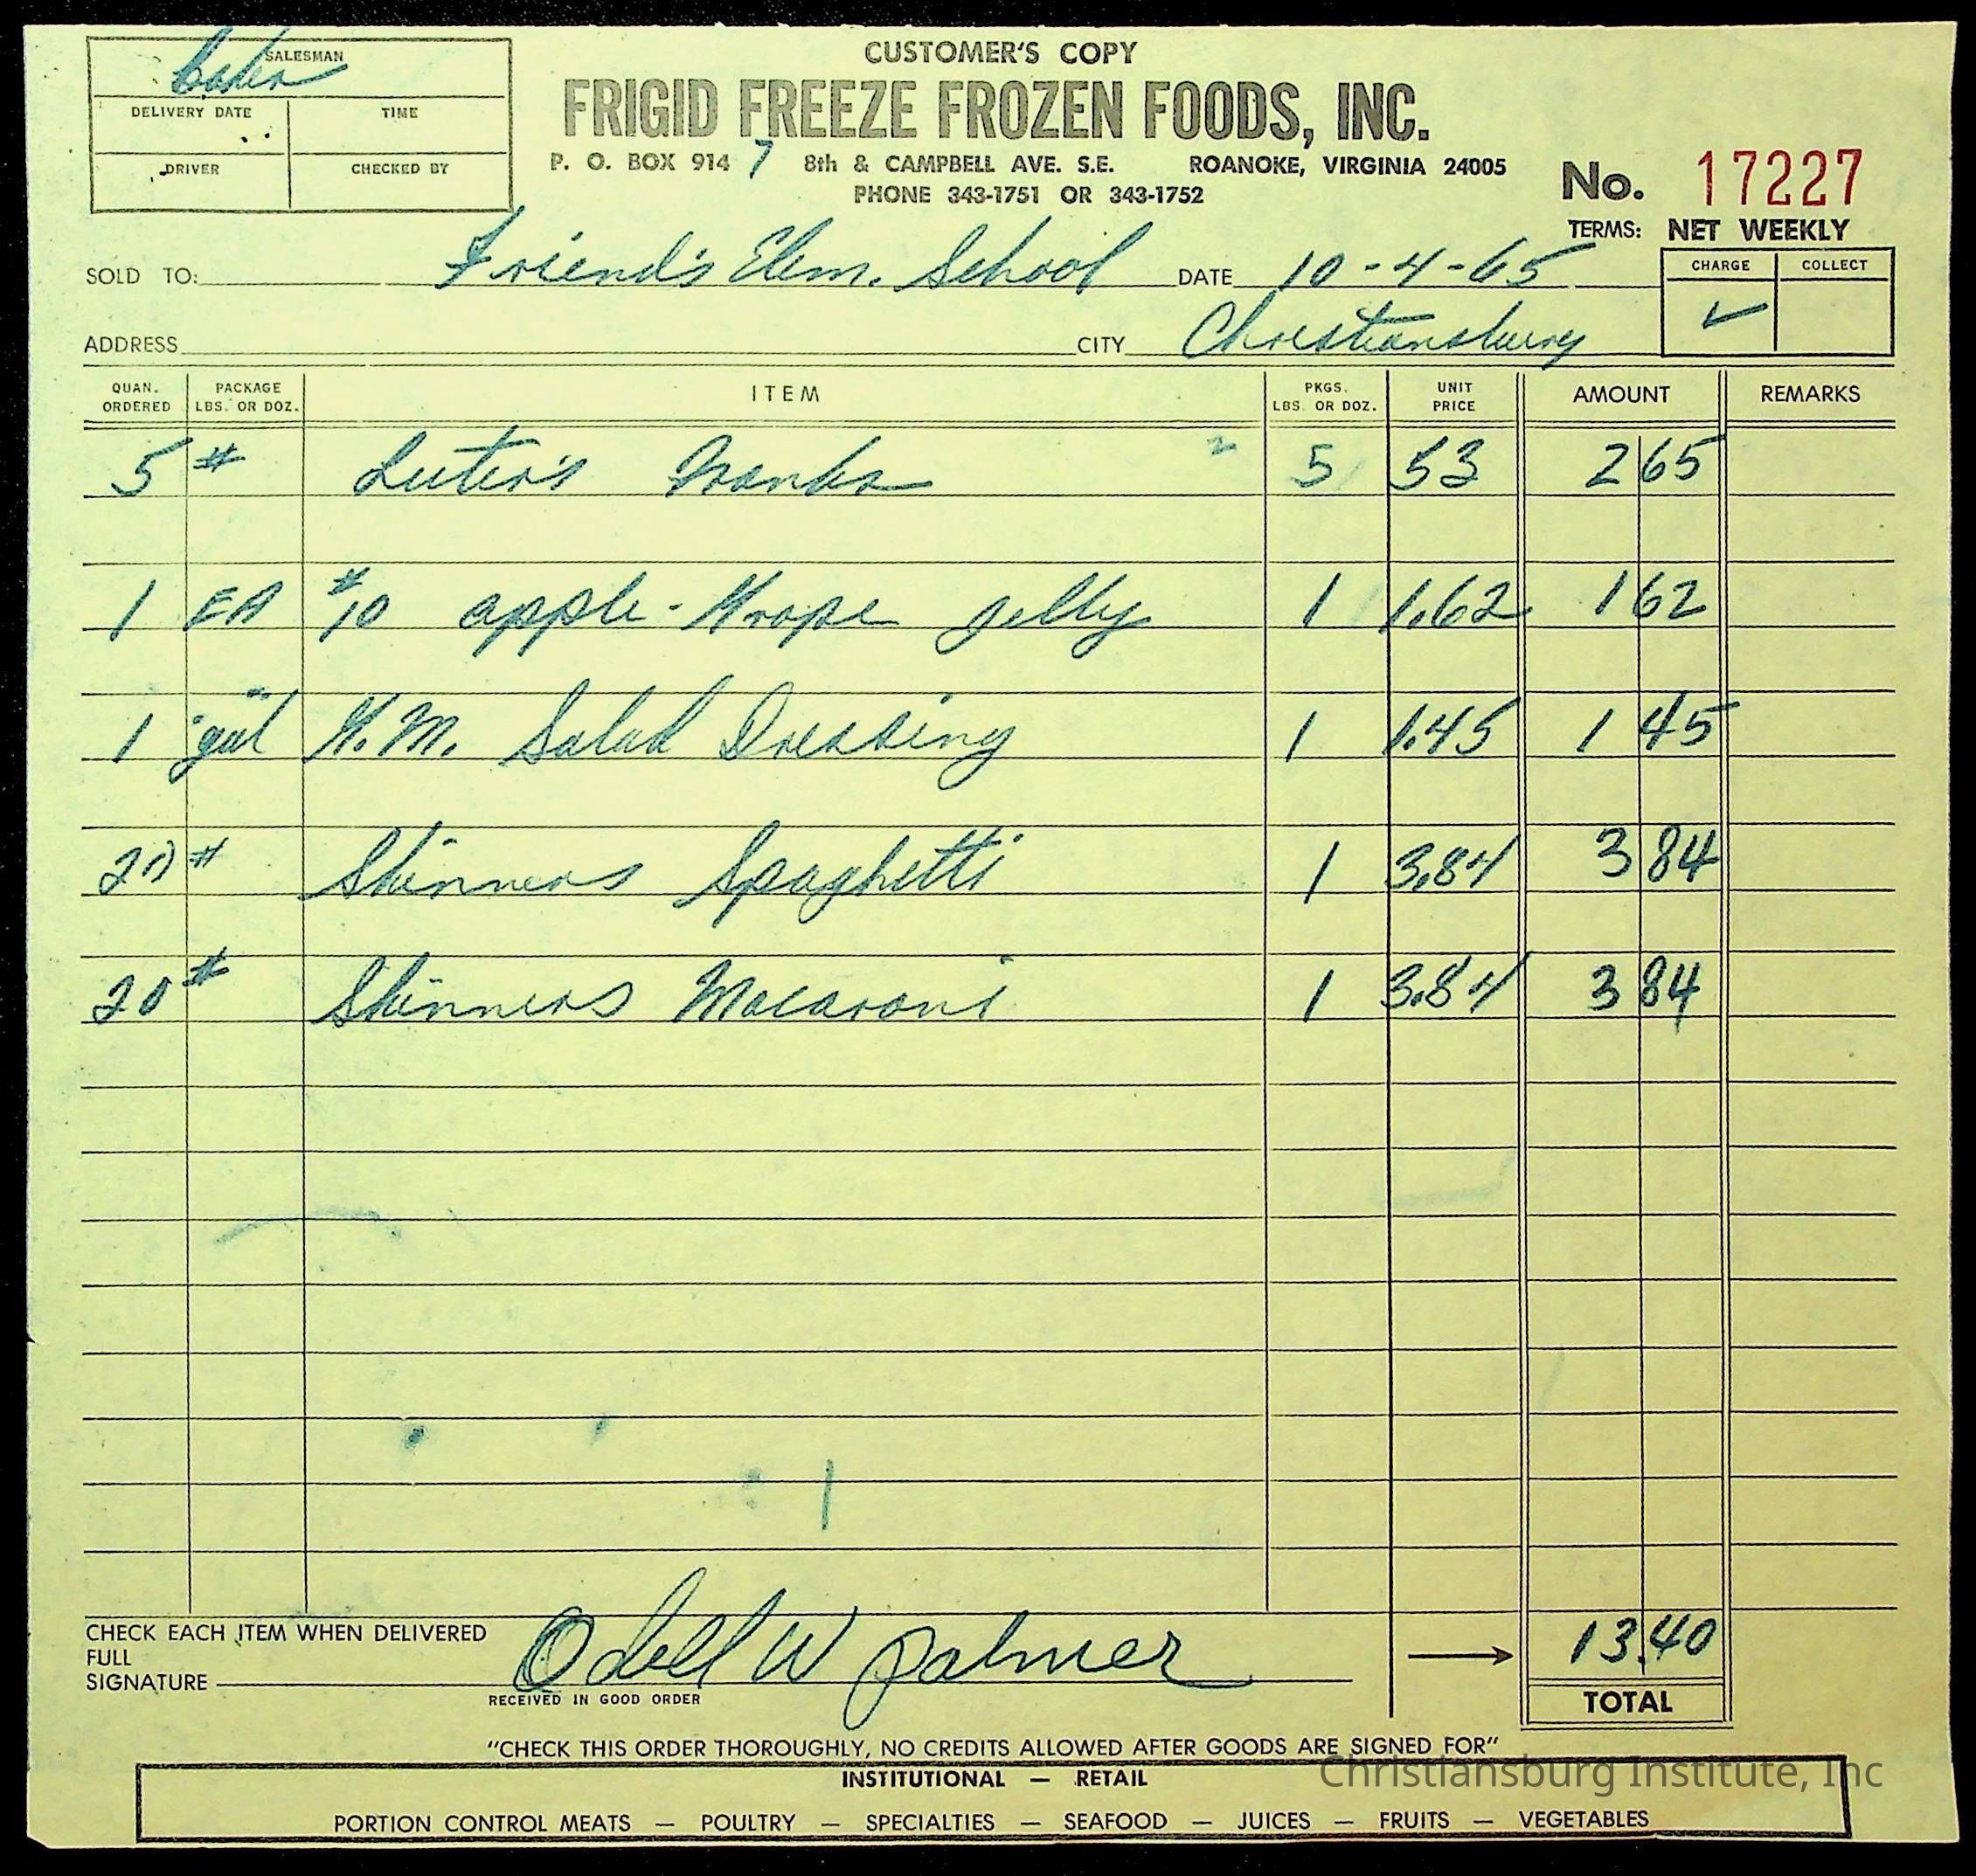 SALESMAN
DELIVERY DATE TIME
DRIVER CHECKED BY
CUSTOMER'S COPY
FRIGID FREEZE FROZEN FOODS, INC.
P. O. BOX 914 7 8th & CAMPBELL AVE. S.E. ROANOKE, VIRGINIA 24005
PHONE 343-1751 OR 343-1752
No. 17227
TERMS: NET WEEKLY
SOLD TO: Friend's Elem. School DATE 10-4-65
CHARGE COLLECT
✓
ADDRESS CITY Christiansburg
QUAN. ORDERED PACKAGE LBS. OR DOZ. ITEM PKGS. LBS. OR DOZ. UNIT PRICE AMOUNT REMARKS
5 # Luter's Franks 5 53 2 65
1 EA #10 apple-Grape Jelly 1 1.62 1 62
1 gal K.M. Salad Dressing 1 1.45 1 45
20 # Skinners Spaghetti 1 3.84 3 84
20 # Skinners Macaroni 1 3.84 3 84
CHECK EACH ITEM WHEN DELIVERED
FULL
SIGNATURE Odell W Palmer
RECEIVED IN GOOD ORDER
13.40
TOTAL
"CHECK THIS ORDER THOROUGHLY, NO CREDITS ALLOWED AFTER GOODS ARE SIGNED FOR"
Christiansburg Institute, Inc
INSTITUTIONAL — RETAIL
PORTION CONTROL MEATS — POULTRY — SPECIALTIES — SEAFOOD — JUICES — FRUITS — VEGETABLES